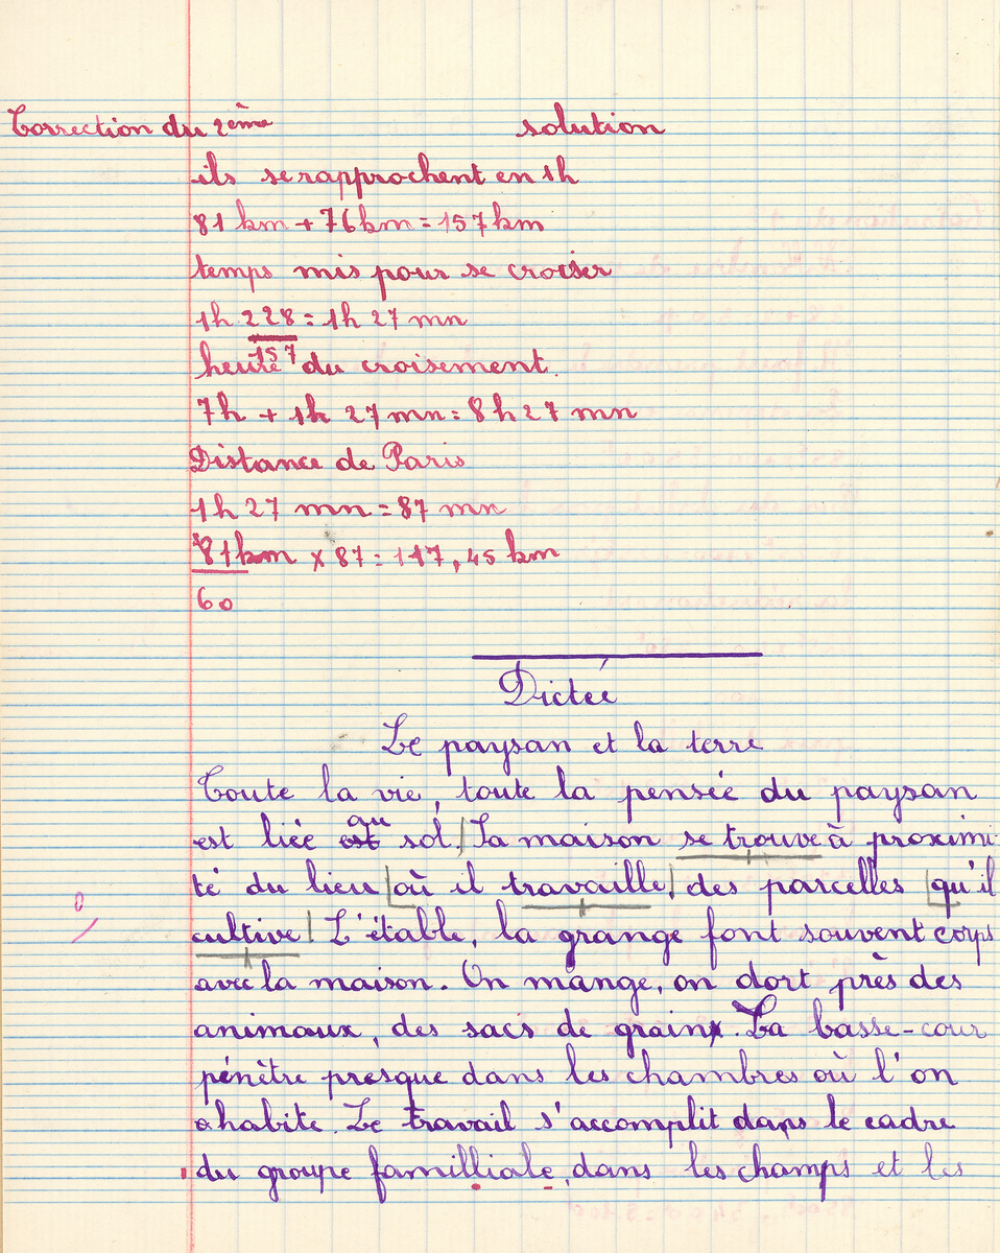 Correction du 2ème solution
ils se rapprochent en 1h
81 km + 76 km = 157 km
temps mis pour se croiser
1h 228 = 1h 27 mn
157
heure du croisement.
7h + 1h 27 mn = 8h 27 mn
Distance de Paris
1h 27 mn = 87 mn
81 km × 87 = 117,45 km
60
Dictée
Le paysan et la terre
Toute la vie, toute la pensée du paysan
au
est liée est sol. Sa maison se trouve à proximi
té du lieu où il travaille des parcelles qu'il
0
cultive L'étable, la grange font souvent corps
avec la maison. On mange, on dort près des
animaux, des sacs de grain. La basse-cour
pénètre presque dans les chambres où l'on
habite. Le travail s'accomplit dans le cadre
du groupe familliale, dans les champs et les